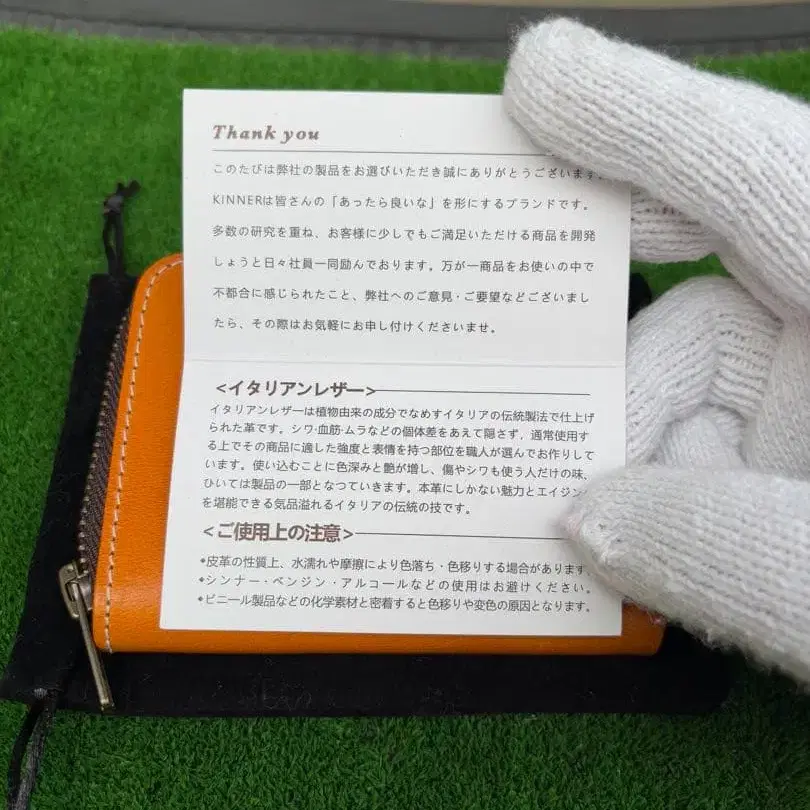 Thank you
このたびは弊社の製品をお選びいただき誠にありがとうございます。
KINNERは皆さんの「あったら良いな」を形にするブランドです。
多数の研究を重ね、お客様に少しでもご満足いただける商品を開発
しょうと日々社員一同励んでおります。万が一商品をお使いの中で
不都合に感じられたこと、弊社へのご意見・ご要望などございまし
たら、その際はお気軽にお申し付けくださいませ。
<イタリアンレザー>
イタリアンレザーは植物由来の成分でなめすイタリアの伝統製法で仕上げ
られた革です。シワ·血筋·ムラなどの個体差をあえて隠さず，通常使用す
る上でその商品に適した強度と表情を持つ部位を職人が選んでお作りして
います。使い込むことに色深みと艶が増し、傷やシワも使う人だけの味、
ひいては製品の一部となつていきます。本革にしかない魅力とエイジング
を堪能できる気品溢れるイタリアの伝統の技です。
<ご使用上の注意>
•皮革の性質上、水濡れや摩擦により色落ち・色移りする場合があります
•シンナー・ベンジン・アルコールなどの使用はお避けください。
•ビニール製品などの化学素材と密着すると色移りや変色の原因となります。